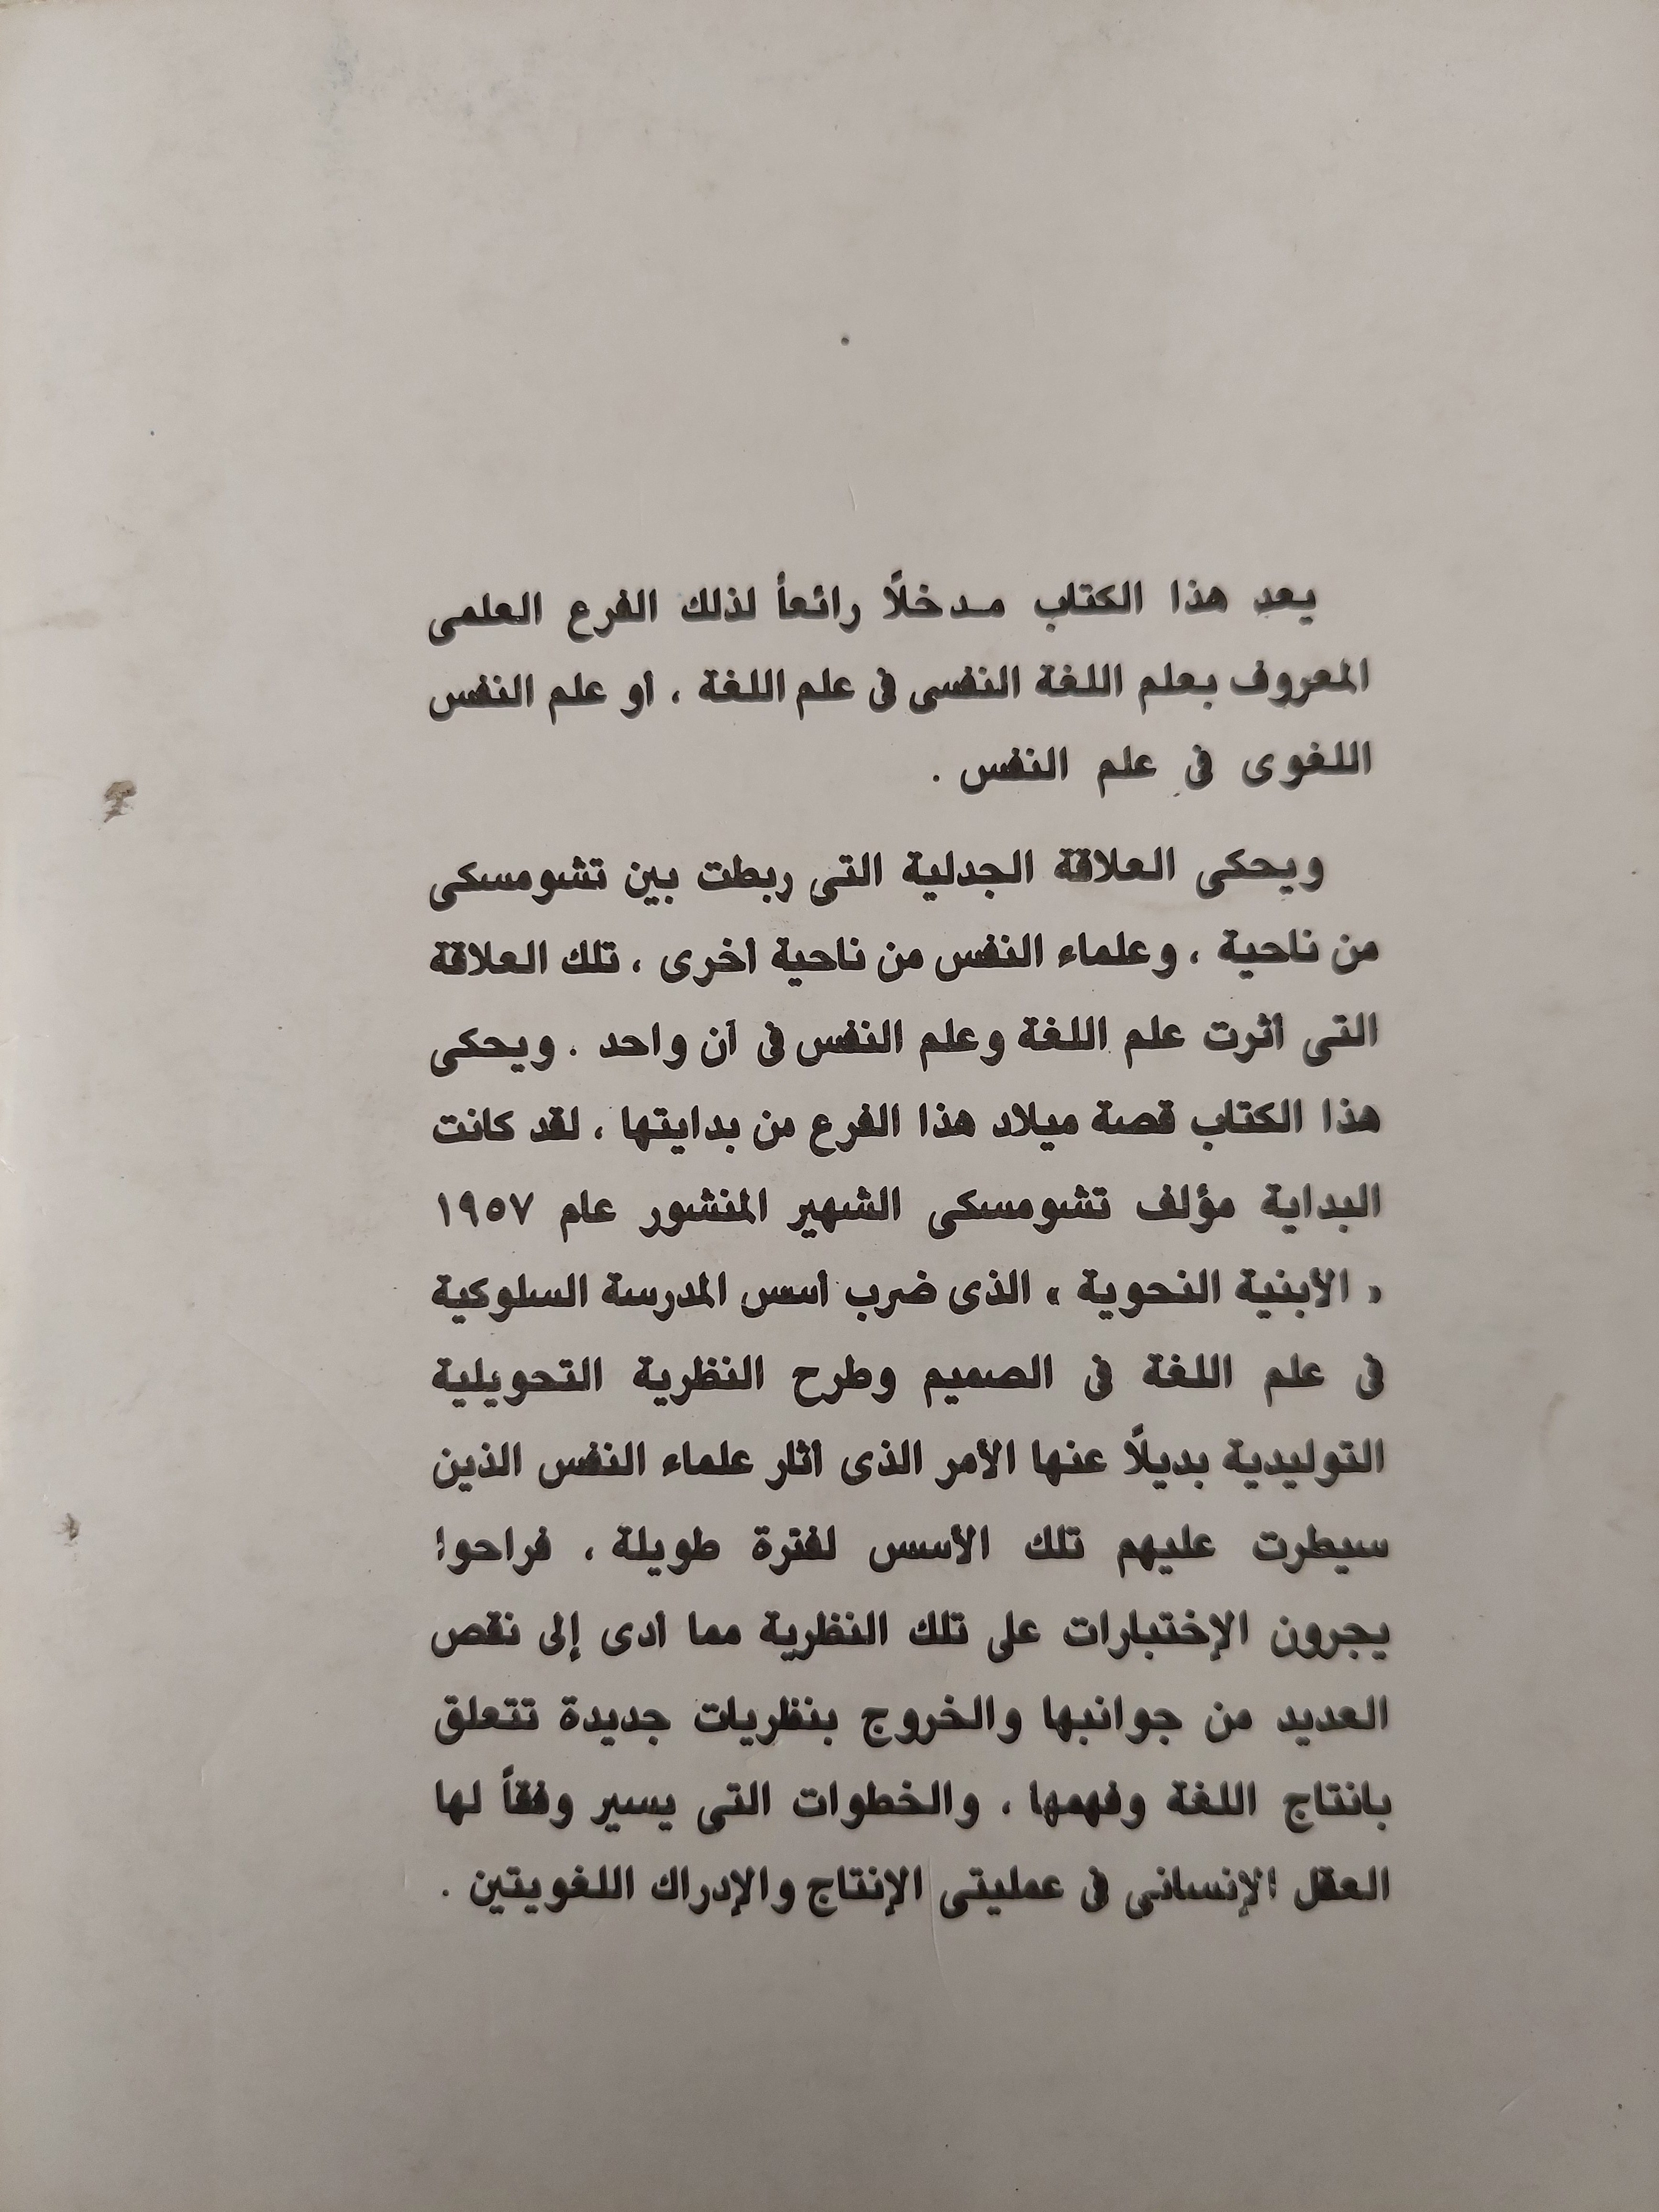 يعد هذا الكتاب مدخلاً رائعاً لذلك الفرع العلمى
المعروف بعلم اللغة النفسى فى علم اللغة ، أو علم النفس
اللغوى فى علم النفس .
ويحكى العلاقة الجدلية التى ربطت بين تشومسكى
من ناحية ، وعلماء النفس من ناحية أخرى ، تلك العلاقة
التى أثرت علم اللغة وعلم النفس فى آن واحد . ويحكى
هذا الكتاب قصة ميلاد هذا الفرع من بدايتها ، لقد كانت
البداية مؤلف تشومسكى الشهير المنشور عام ١٩٥٧
« الأبنية النحوية » الذى ضرب أسس المدرسة السلوكية
فى علم اللغة فى الصميم وطرح النظرية التحويلية
التوليدية بديلاً عنها الأمر الذى أثار علماء النفس الذين
سيطرت عليهم تلك الأسس لفترة طويلة ، فراحوا
يجرون الإختبارات على تلك النظرية مما أدى إلى نقص
العديد من جوانبها والخروج بنظريات جديدة تتعلق
بانتاج اللغة وفهمها ، والخطوات التى يسير وفقاً لها
العقل الإنسانى فى عمليتى الإنتاج والإدراك اللغويتين .